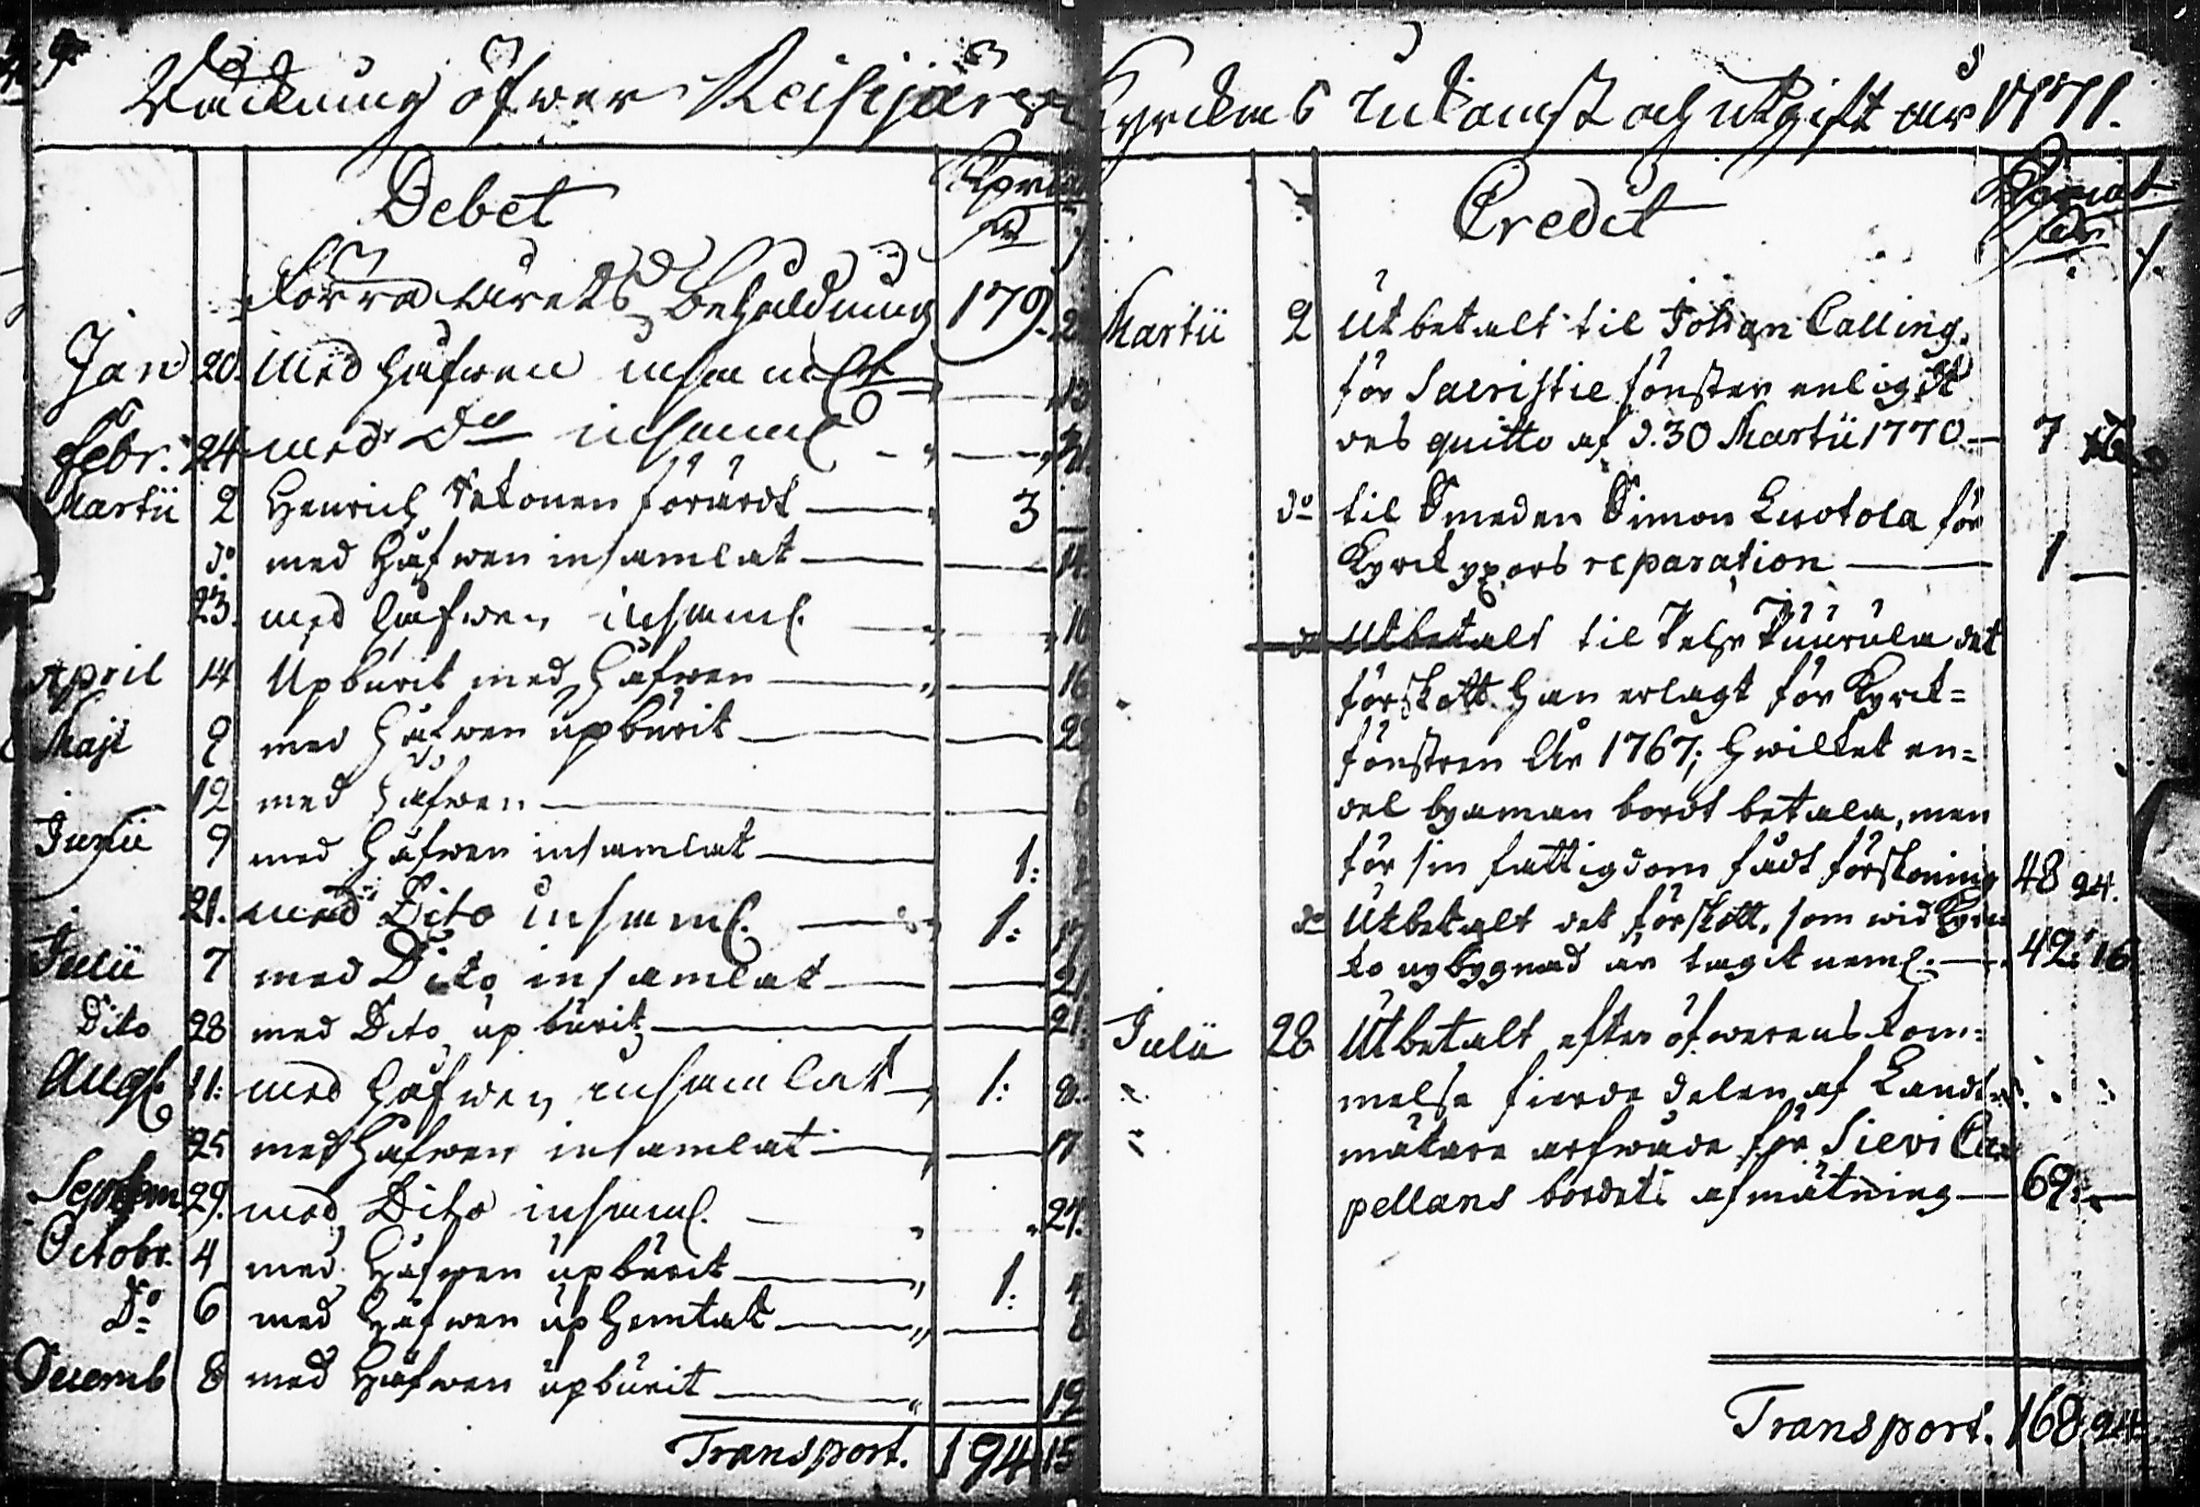 Räckning öfwer Reisijärvi
Debet
Förra årets Behåldning 179. 2
Jan 20. Med håfwen insamlat 13
Febr. 24 med Do insaml
Martii 2 Henrich Tekonen förärdt 3
do med Håfwen insamlat 14.
23. med håfwen insaml. 10
April 14 Upburit med Håfwen 16
Maji 9 med Håfwen upburit 2
12 med Håfwen 6
Junii 9 med Håfwen insamlat 1:
21. med Dito insaml. 1: 17
Julii 7 med Dito insamlat 21
Dito 28 med Dito upburit 21.
Aug. 11: med håfwen insamlat 1: 8.
25 med Håfwen insamlat 17
Septem 29. med Dito insaml. 27.
Octobr. 4 med Håfwen upburit 1: 4
Do 6 med Håfwen uphemtat 8
Decemb 8 med Håfwen upburit 19
Transport. 194 15
Kyrckas inkomst och utgift år 1771.
Credit
Martii 2 Utbetalt til Johan Calling
för Sacristie fönster enligt
des quitto af d. 30 Martii 1770. 7
do til Smeden Simon Luotola för
Kyrk reparation 1
do Utbetalt til Pehr Puurula det
förskott han erlagt för Kyrk=
fönstren År 1767; hwilket en=
del byaman bordt betala, men
för sin fattigdom fådt förskoning 48 24.
do Utbetalt det förskott, som wid Kyrc
ko nybygnad är tagit neml. 42: 16
Julii 28 Utbetalt efter öfwerens kom=
melse fierde delen af Landt
mätare arfwode för Sievi Ca
pellans bordets afmätning 69:
Transport. 168 24